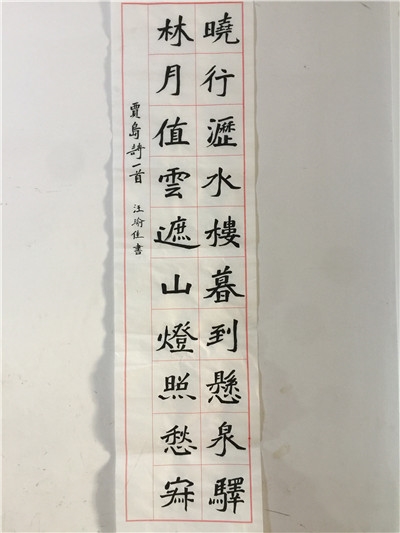 曉行瀝水樓暮到懸泉驛
林月值雲遮山燈照愁寂
賈島詩一首 汪瑜佳書